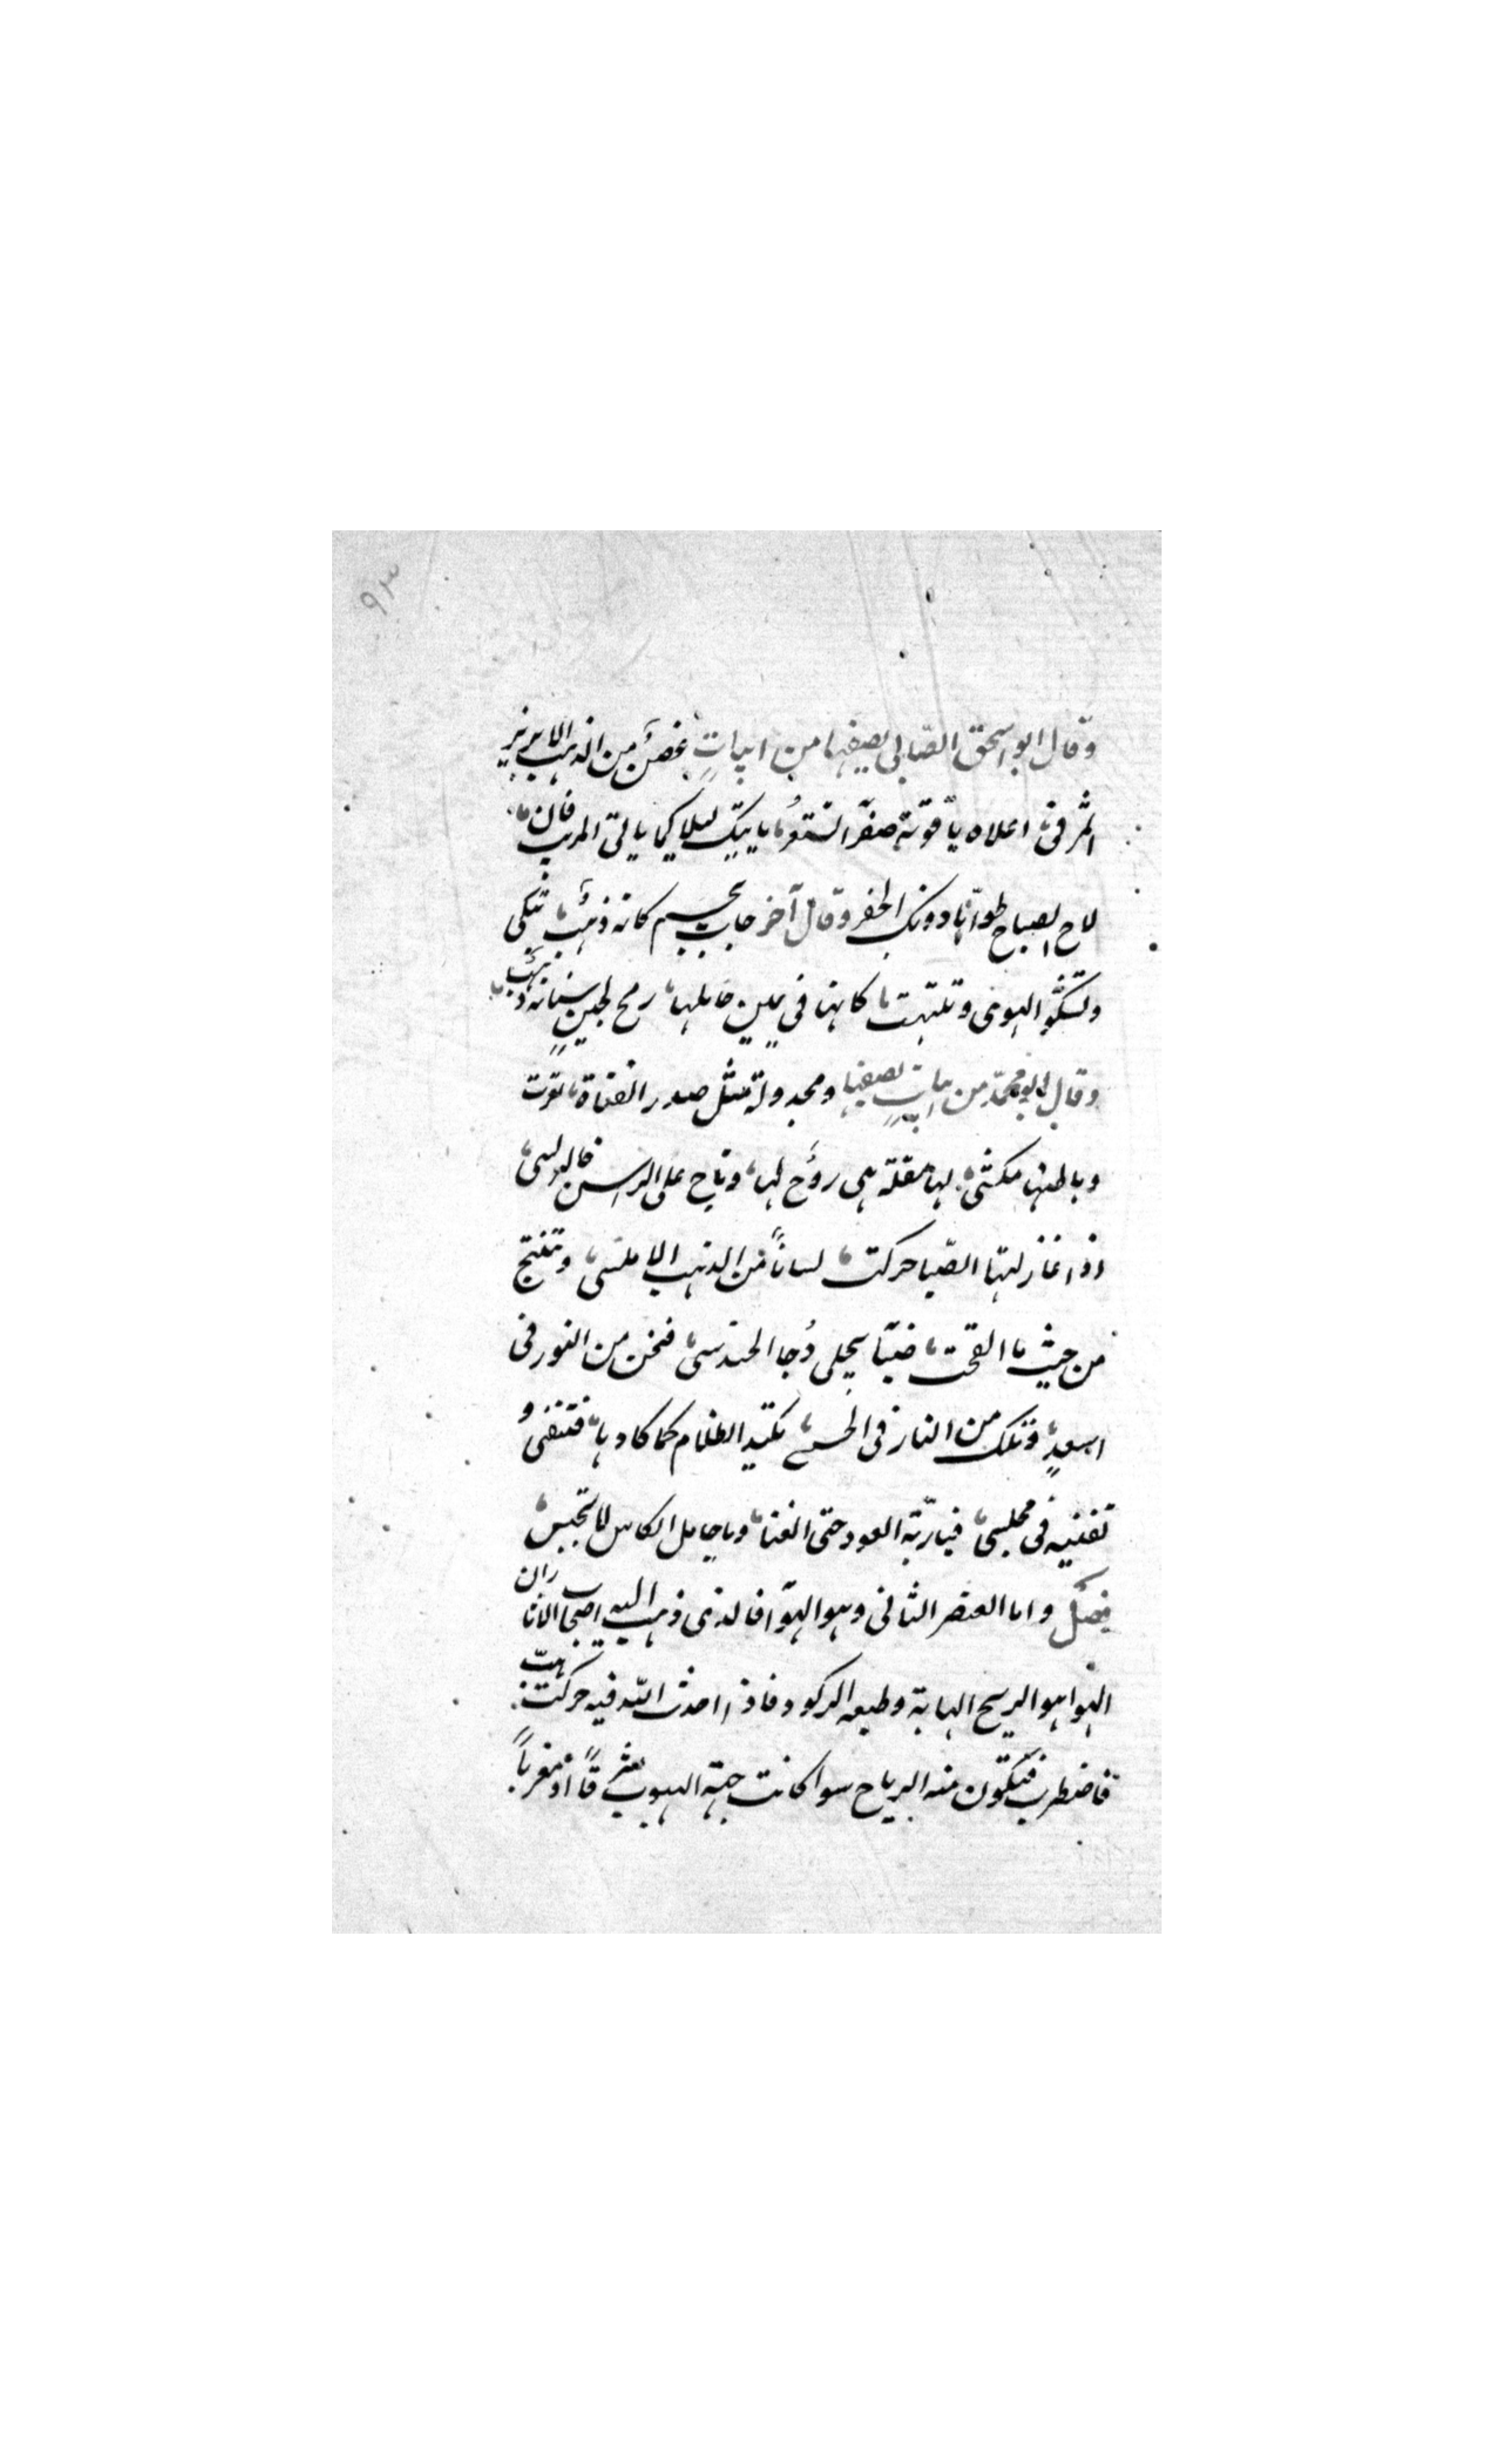 ٩٣
وقال ابو اسحق الصّابى يصفها من ابياتٍ غصنٌ من الذهب الابريز
اثمر فى اعلاه ياقوتة صفرا تستعرُ تاتيك ليلا كما ياتى المريب فان
لاح الصباح طواها دونك الحفر وقال آخر جات بجسم كانه ذهبٌ تبكى
وتشكو الهوى وتلتهب كانها فى يمين حاملها رمح لجينٍ سنانه ذهبٌ
وقال ابو محمد من ابياتٍ يصفها ومجدولة مثل صدر القناة تعرّت
وباطنها مكتسى لها مقلة هى روحٌ لها وتاج على الراس كالبرنسى
اذا غازلتها الصّبا حركت لساناً من الذهب الاملسى وتنتج
من حيث ما القحت ضيّا يجلى دُجا الحندسى فنحن من النور فى
اسعدٍ وتلك من النار فى انحس تكيد الظلام كما كادها فتفنى و
تفنيه فى مجلسى فيا ربّة العود حثى الغنا ويا حامل الكاس لا تحبس
فصل واما العنصر الثانى وهو الهوّا فالذى ذهب اليه اصحاب الاثار ان
الهوا هو الريح الهابة وطبعه الركود فاذا احدث الله فيه حركت هبّت
فاضطرب فتكوّن منه الرياح سوا كانت جهة الهبوب شرقاً او مغرباً